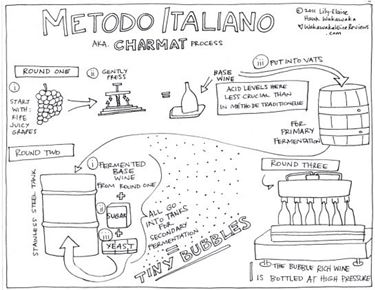 METODO ITALIANO
AKA. CHARMAT PROCESS
© 2011 Lily-Elaine
Hawk Wakawaka
WakawakaWineReviews
.com
ROUND ONE
i
START
WITH:
RIPE
JUICY
GRAPES
ii
GENTLY
PRESS
=
BASE
WINE
iii PUT INTO VATS
ACID LEVELS HERE
LESS CRUCIAL THAN
IN METHODE TRADITIONELLE
FOR
PRIMARY
FERMENTATION
ROUND TWO
STAINLESS STEEL TANK
i
FERMENTED
BASE
WINE
FROM ROUND ONE
+
ii
SUGAR
+
iii
YEAST
ALL GO
INTO TANKS
FOR
SECONDARY
FERMENTATION
=
TINY BUBBLES
ROUND THREE
THE BUBBLE RICH WINE
IS BOTTLED AT HIGH PRESSURE